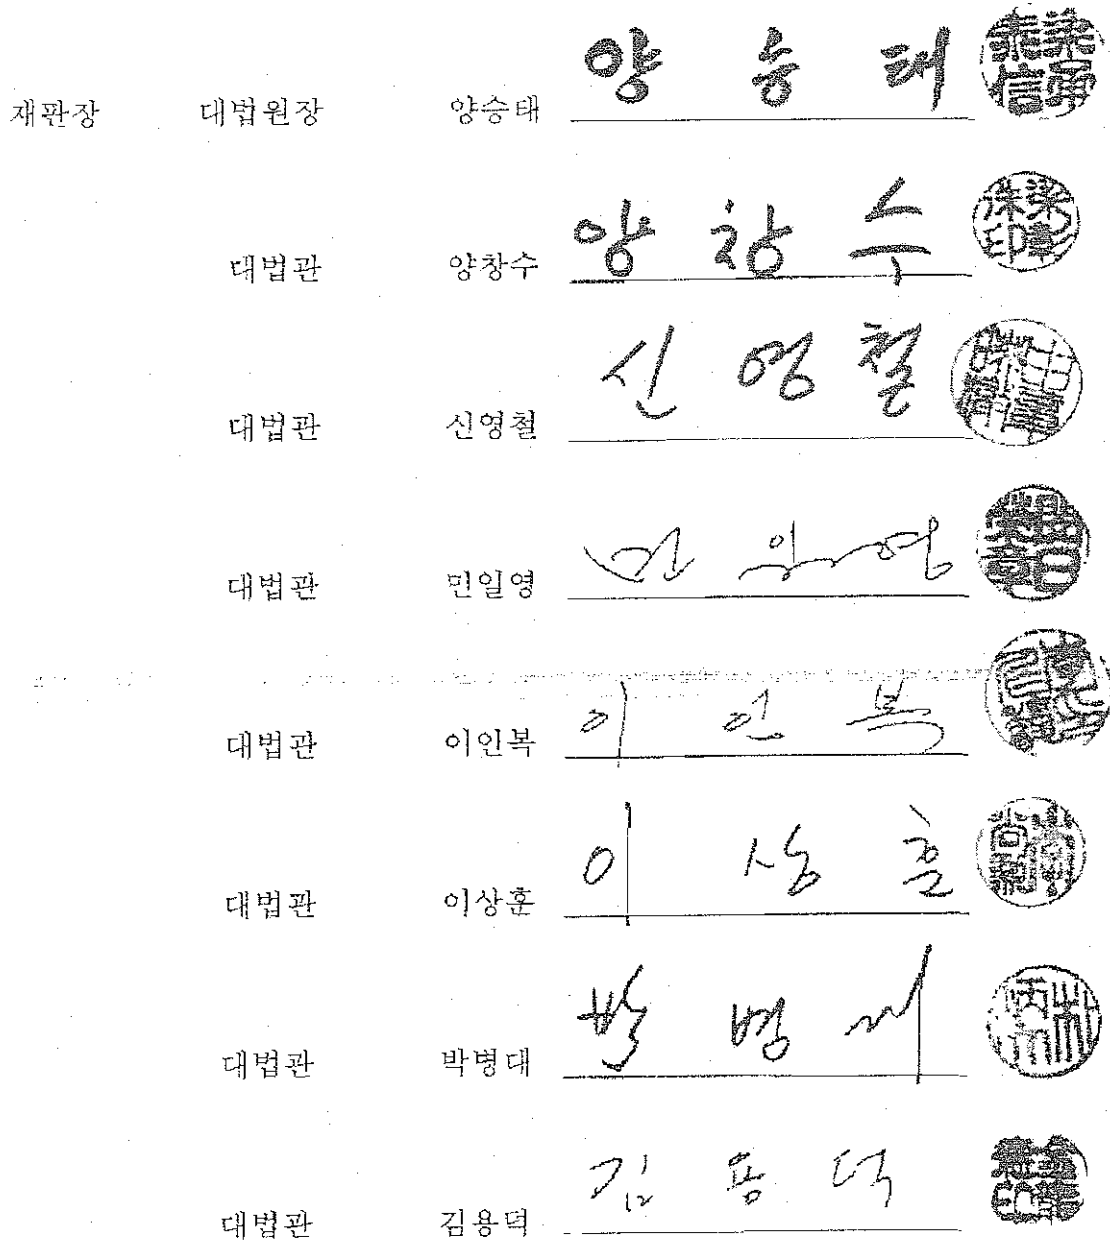 재판장 대법원장 양승태 양승태
대법관 양창수 양창수
대법관 신영철 신영철
대법관 민일영 민일영
대법관 이인복 이인복
대법관 이상훈 이상훈
대법관 박병대 박병대
대법관 김용덕 김용덕